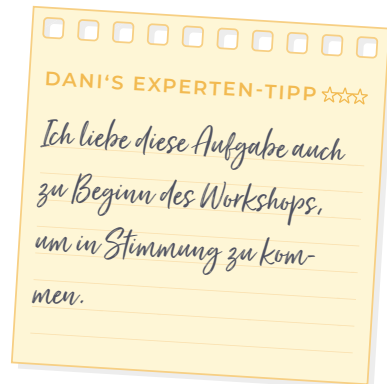 DANI'S EXPERTEN-TIPP
Ich liebe diese Aufgabe auch
zu Beginn des Workshops,
um in Stimmung zu kom-
men.